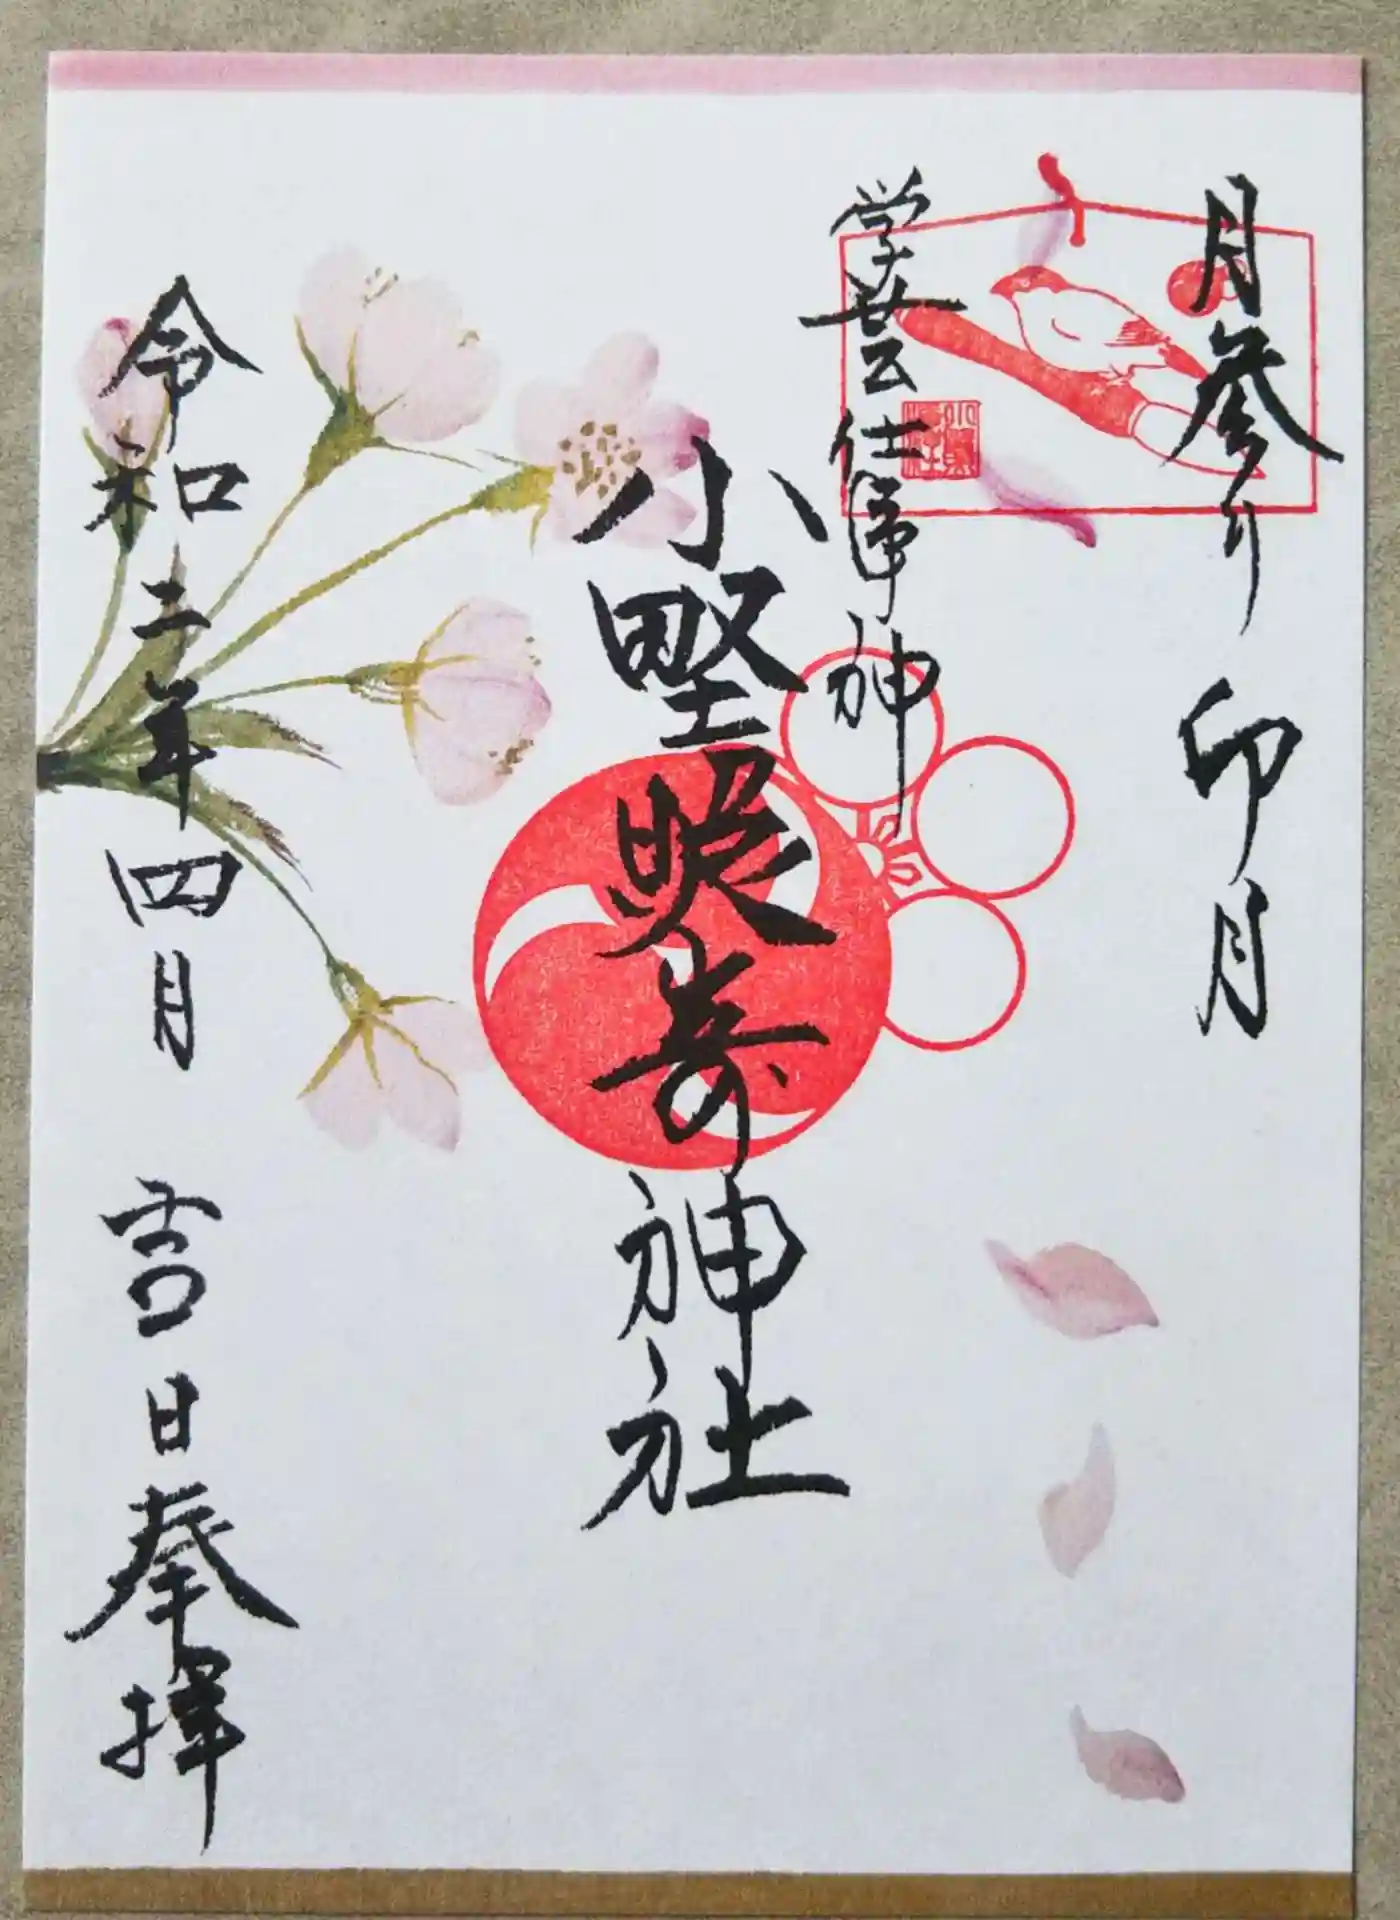 月参り 卯月
学芸仕事神
小野照崎神社
令和二年四月 日奉拝